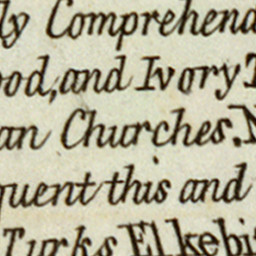 ly Comprehend
ood, and Ivory T
an Churches. N
quent this and
Turks El kebi